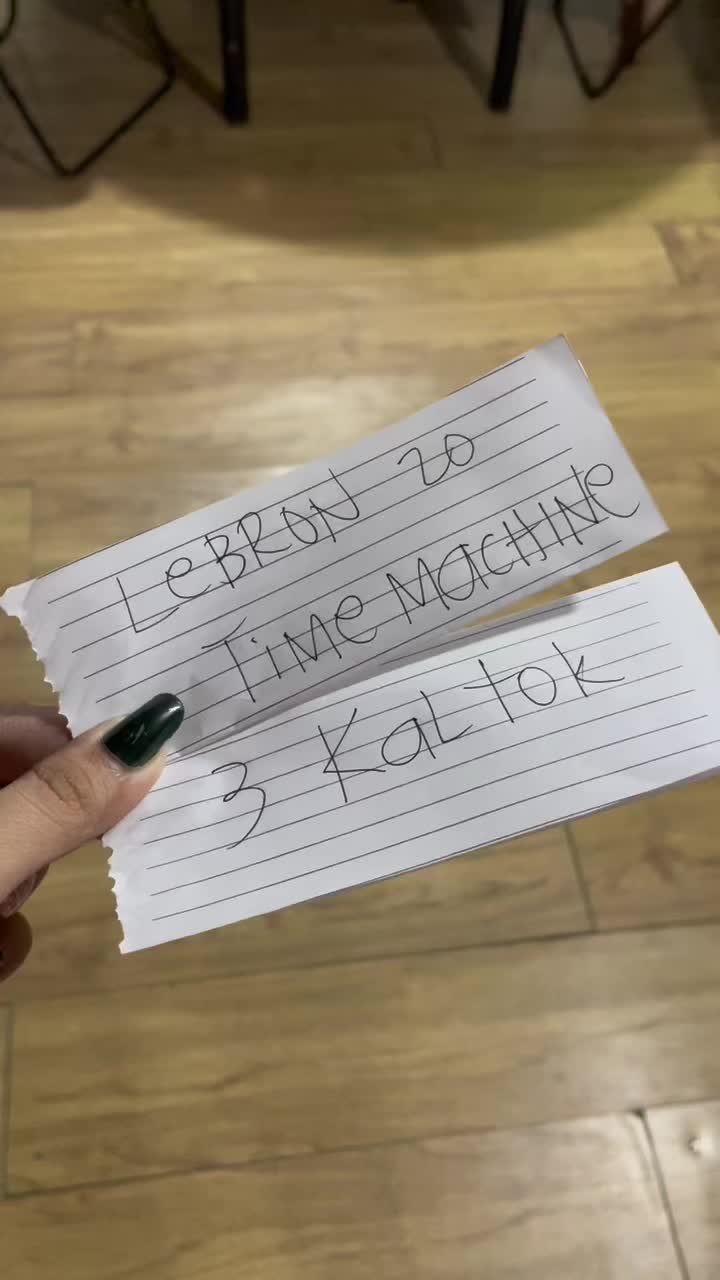 LeBRON 20
TiMe MacHINe
3 KaLtok